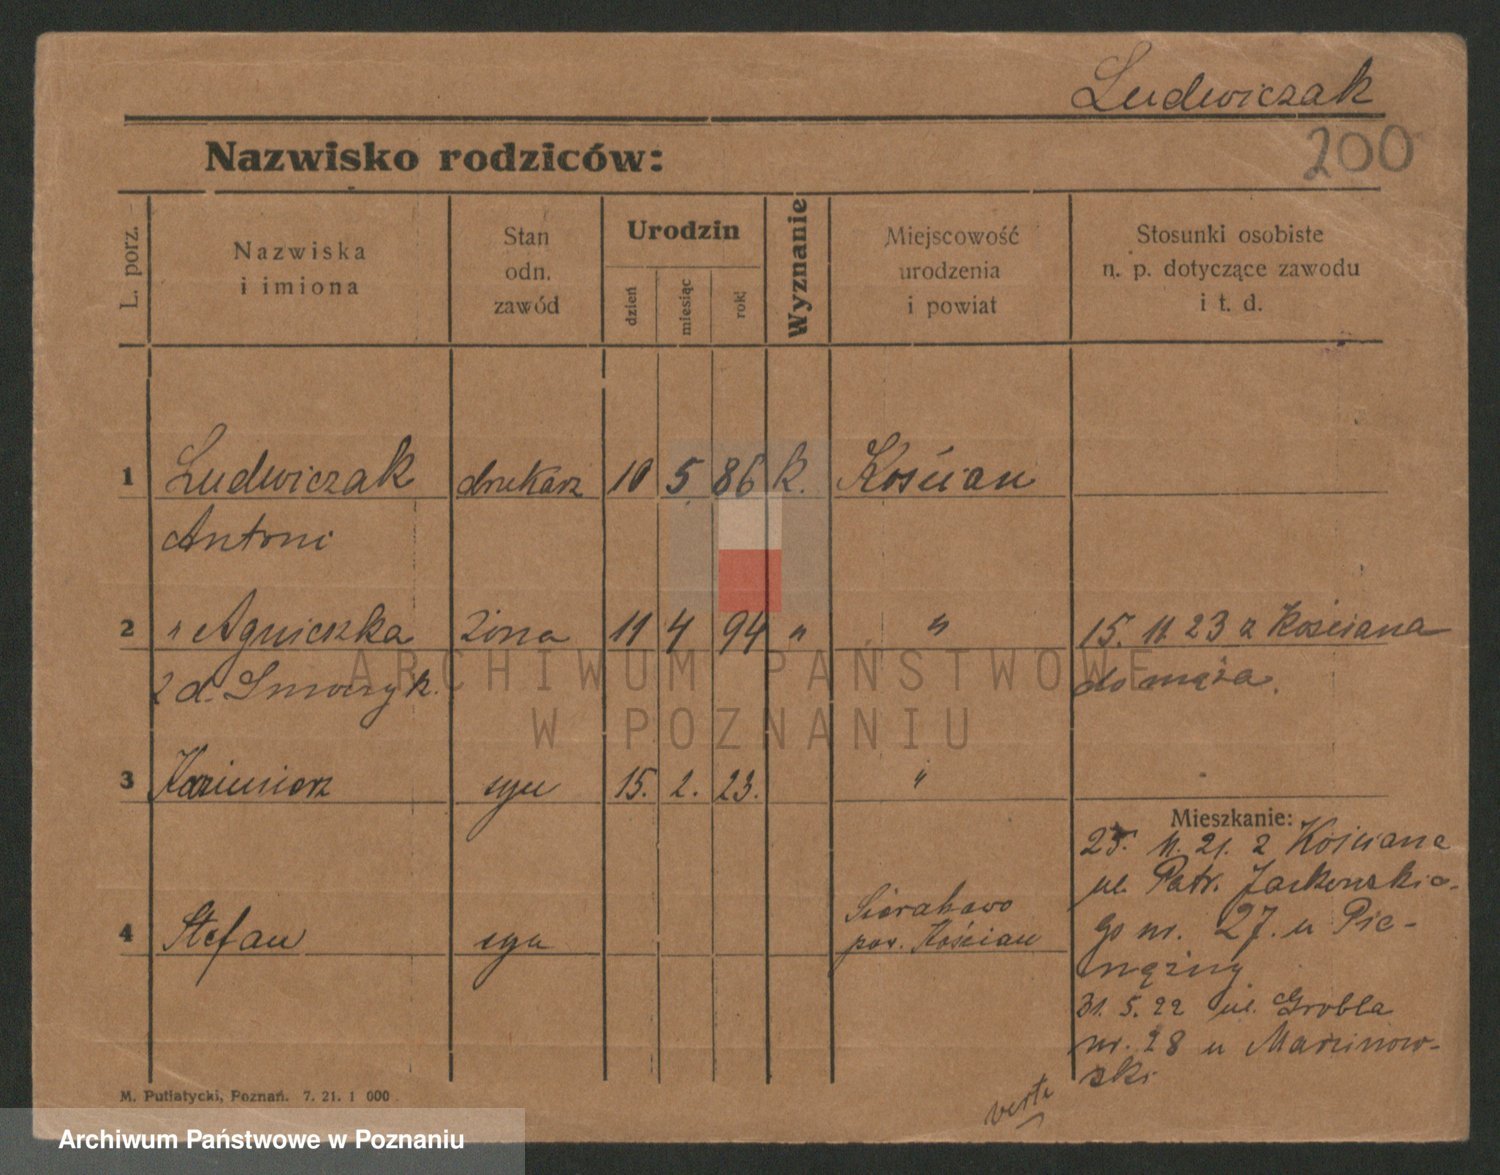 Ludwiczak
200
Nazwisko rodziców:
L. porz.
Nazwiska
i imiona
Stan
odn.
zawód
Urodzin
dzień
miesiąc
rok
Wyznanie
Miejscowość
urodzenia
i powiat
Stosunki osobiste
n. p. dotyczące zawodu
i t. d.
1 Ludwiczak drukarz 10 5 86 k. Kościan
Antoni
2 " Agnieszka żona 11 4 94 " " 15. 11. 23 z Kościana
z d. Smoczyk do męża.
3 Kazimierz syn 15. 2. 23. "
Mieszkanie:
25. 11. 21. z Kościana
ul. Patr. Jackowskie-
go nr. 27. u Pie-
nężny
4 Stefan syn
pow. Kościan
31. 5. 22 ul. Grobla
nr. 28 u Marcinow-
ski
verte
M. Putiatycki, Poznań. 7. 21. 1 000
ARCHIWUM PAŃSTWOWE
W POZNANIU
Archiwum Państwowe w Poznaniu